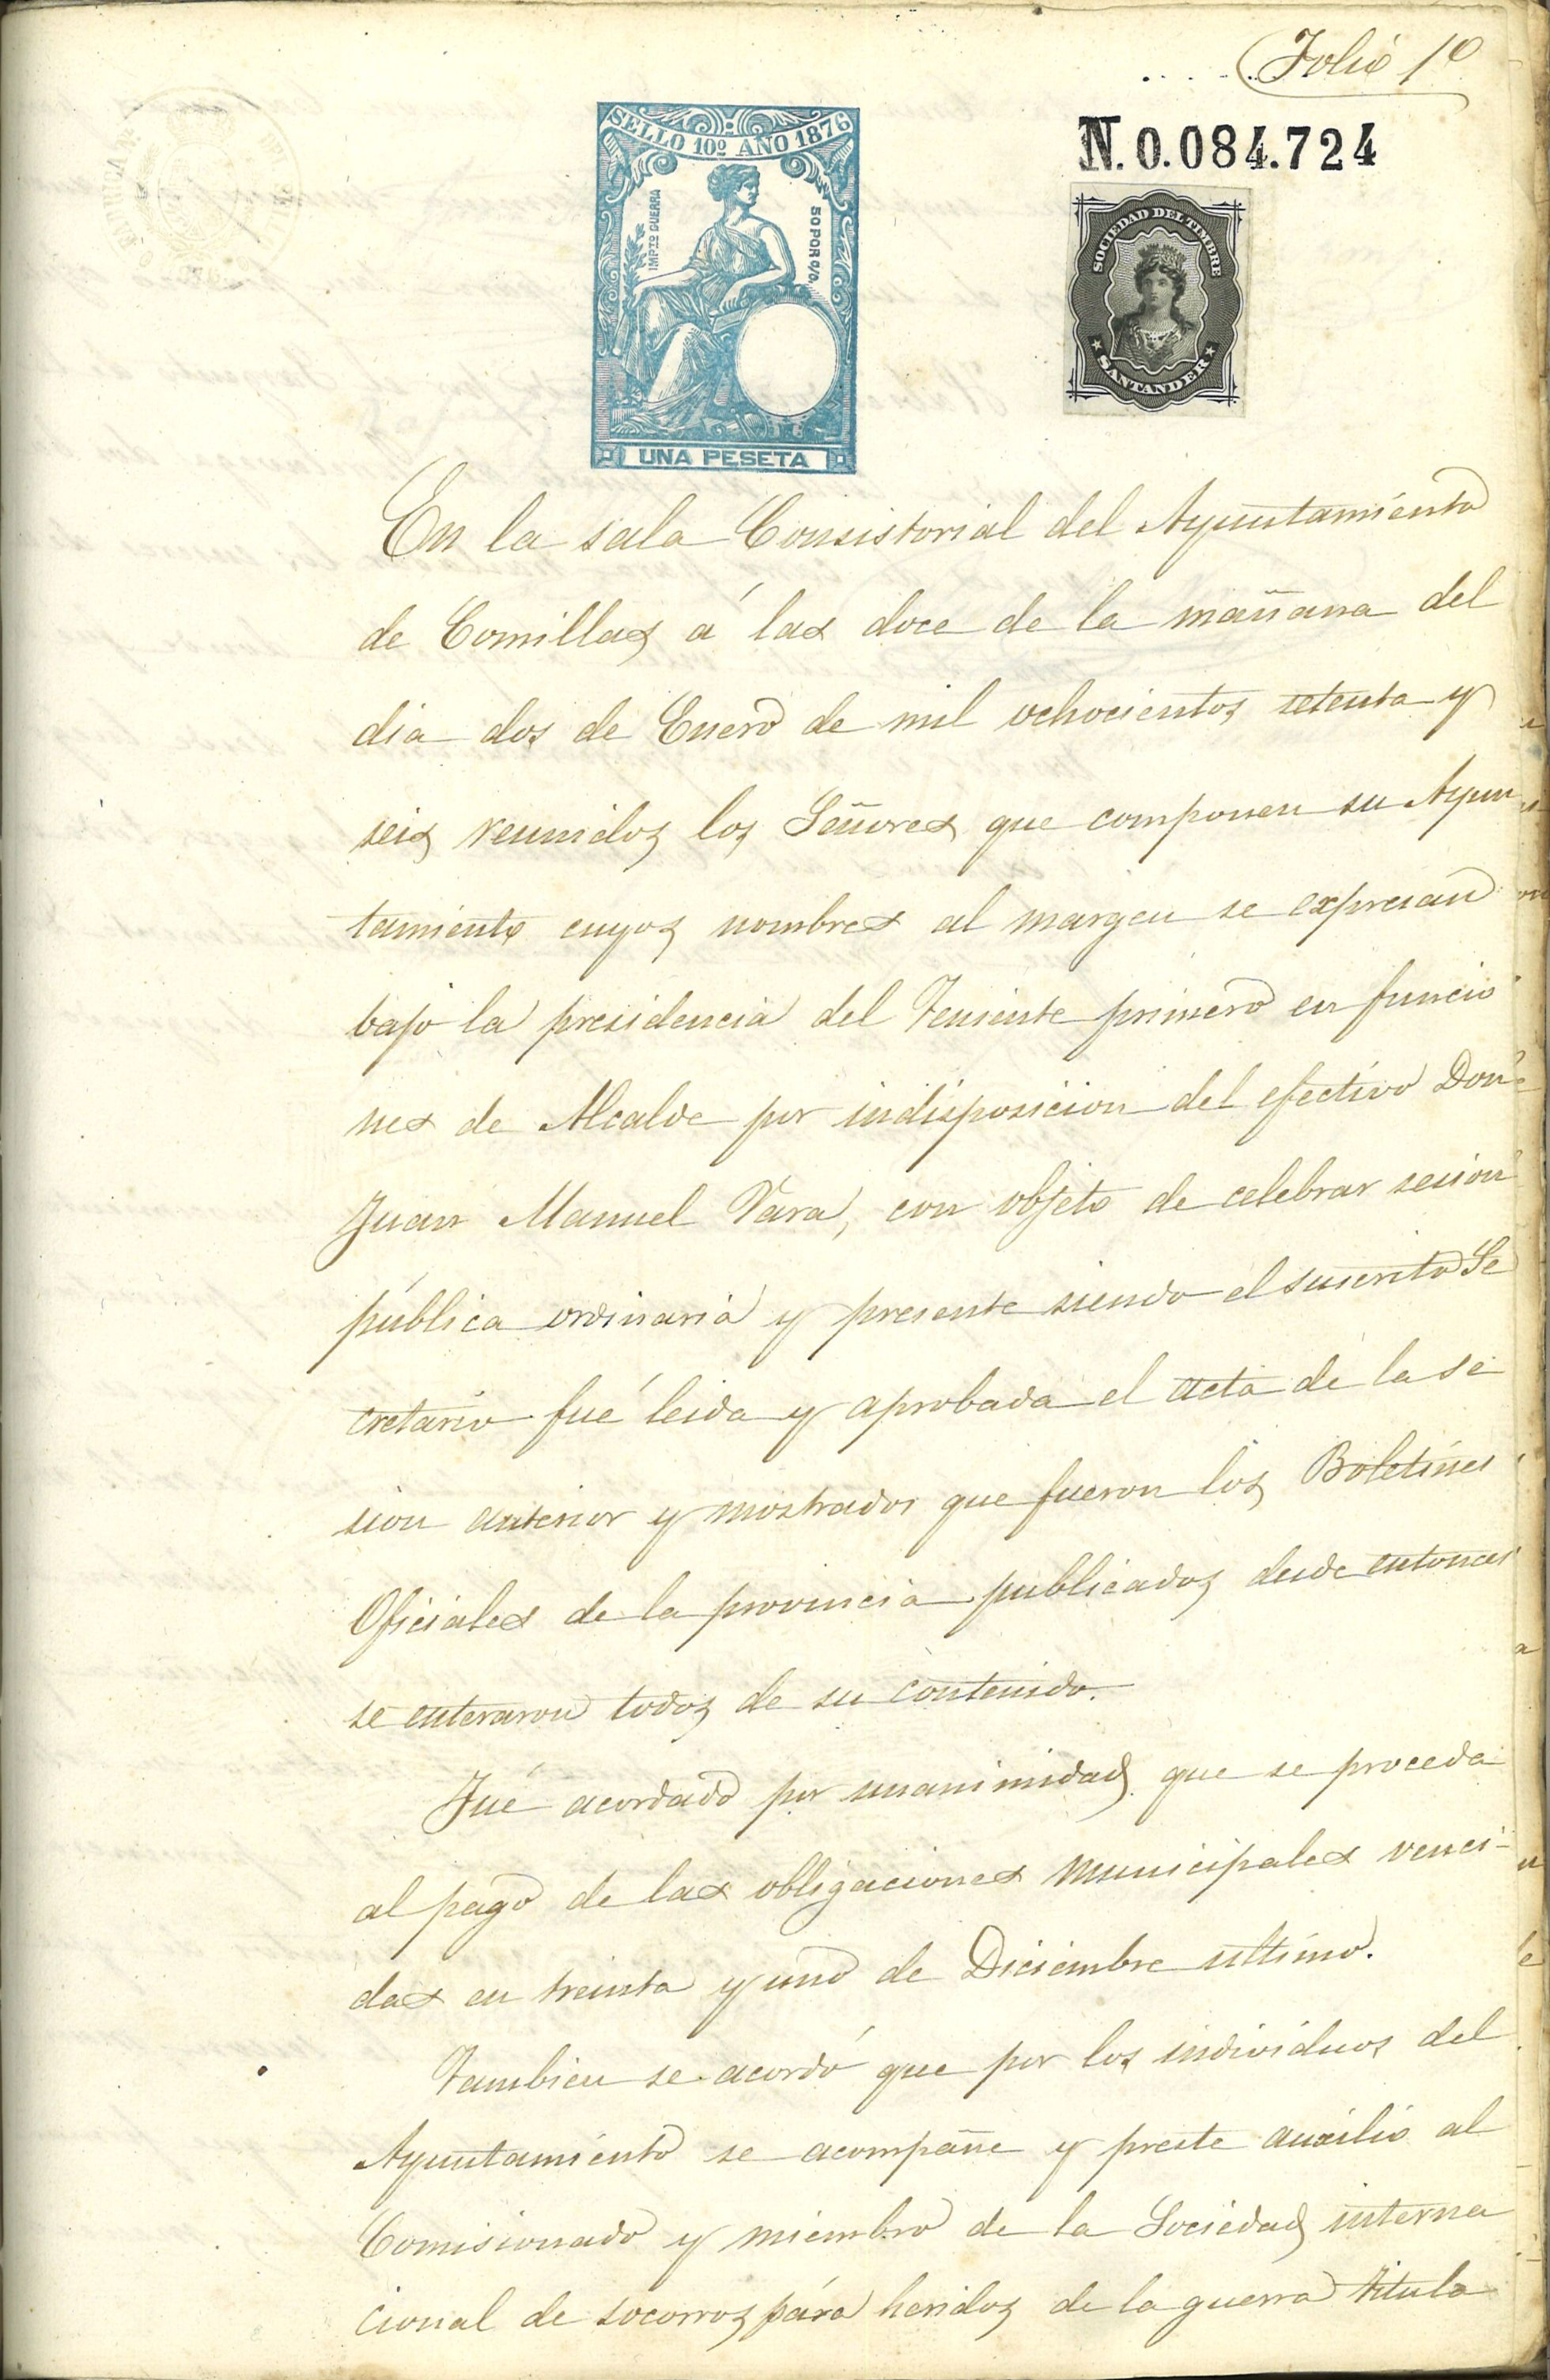 Folio 1º
SELLO 10º AÑO 1876
IMPTO GUERRA
50 POR 0/0.
UNA PESETA
N. 0.084.724
SOCIEDAD DEL TIMBRE
SANTANDER
En la sala Consistorial del Ayuntamiento
de Comillas á las doce de la mañana del
dia dos de Enero de mil ochocientos setenta y
seis reunidos los Señores que componen su Ayun
tamiento cuyos nombres al margen se expresan
bajo la presidencia del Teniente primero en funcio
nes de Alcalde por indisposicion del efectivo Don
Juan Manuel Vara, con objeto de celebrar sesion
pública ordinaria y presente siendo el suscrito Se
cretario fué leida y aprobada el acta de la se
sion anterior y mostrados que fueron los Boletines
Oficiales de la provincia publicados desde entonces
se enteraron todos de su contenido.
Fué acordado por unanimidad que se proceda
al pago de las obligaciones municipales venci-
das en treinta y uno de Diciembre ultimo.
Tambien se acordó que por los individuos del
Ayuntamiento se acompañe y preste auxilio al
Comisionado y miembro de la Sociedad interna
cional de socorros para heridos de la guerra titula